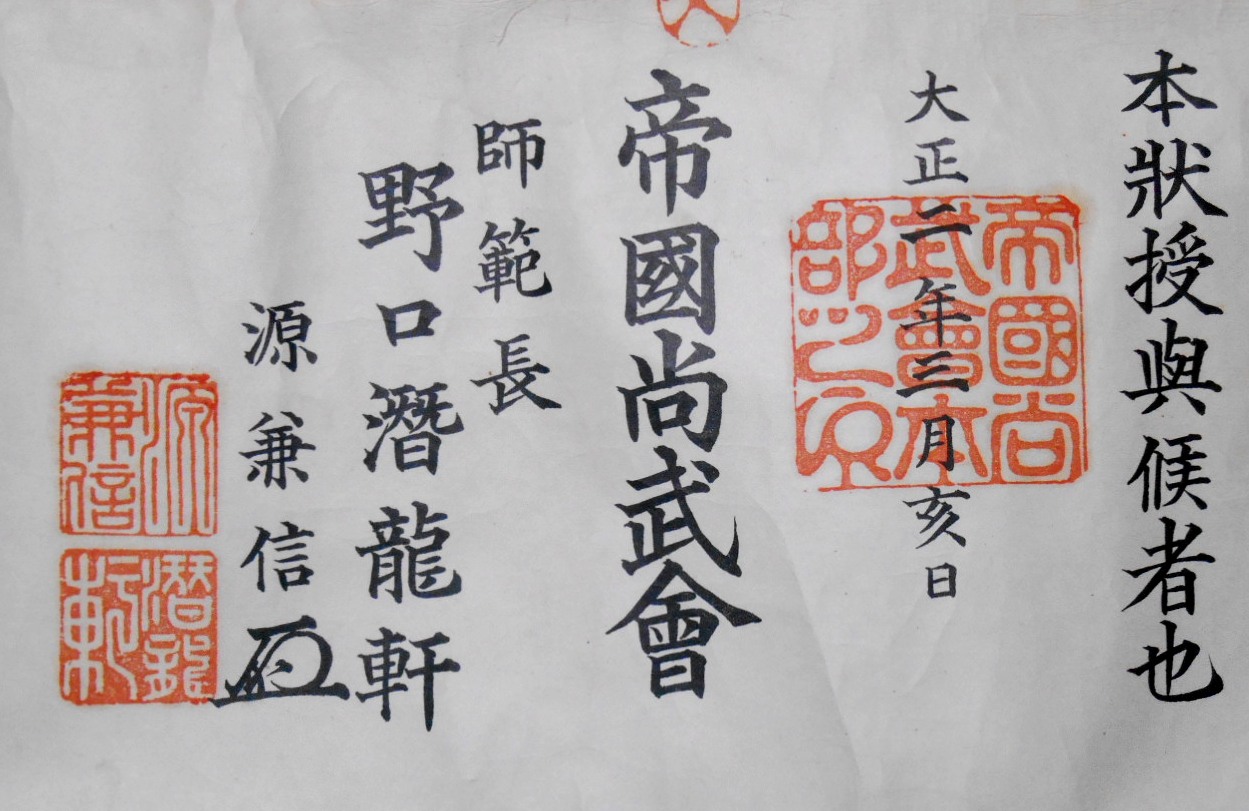 本狀授與候者也
大正二年三月亥日
帝國尚武會
師範長
野口潛龍軒
源兼信
帝國尚
武會本
部之印
源
兼信
潛龍
軒